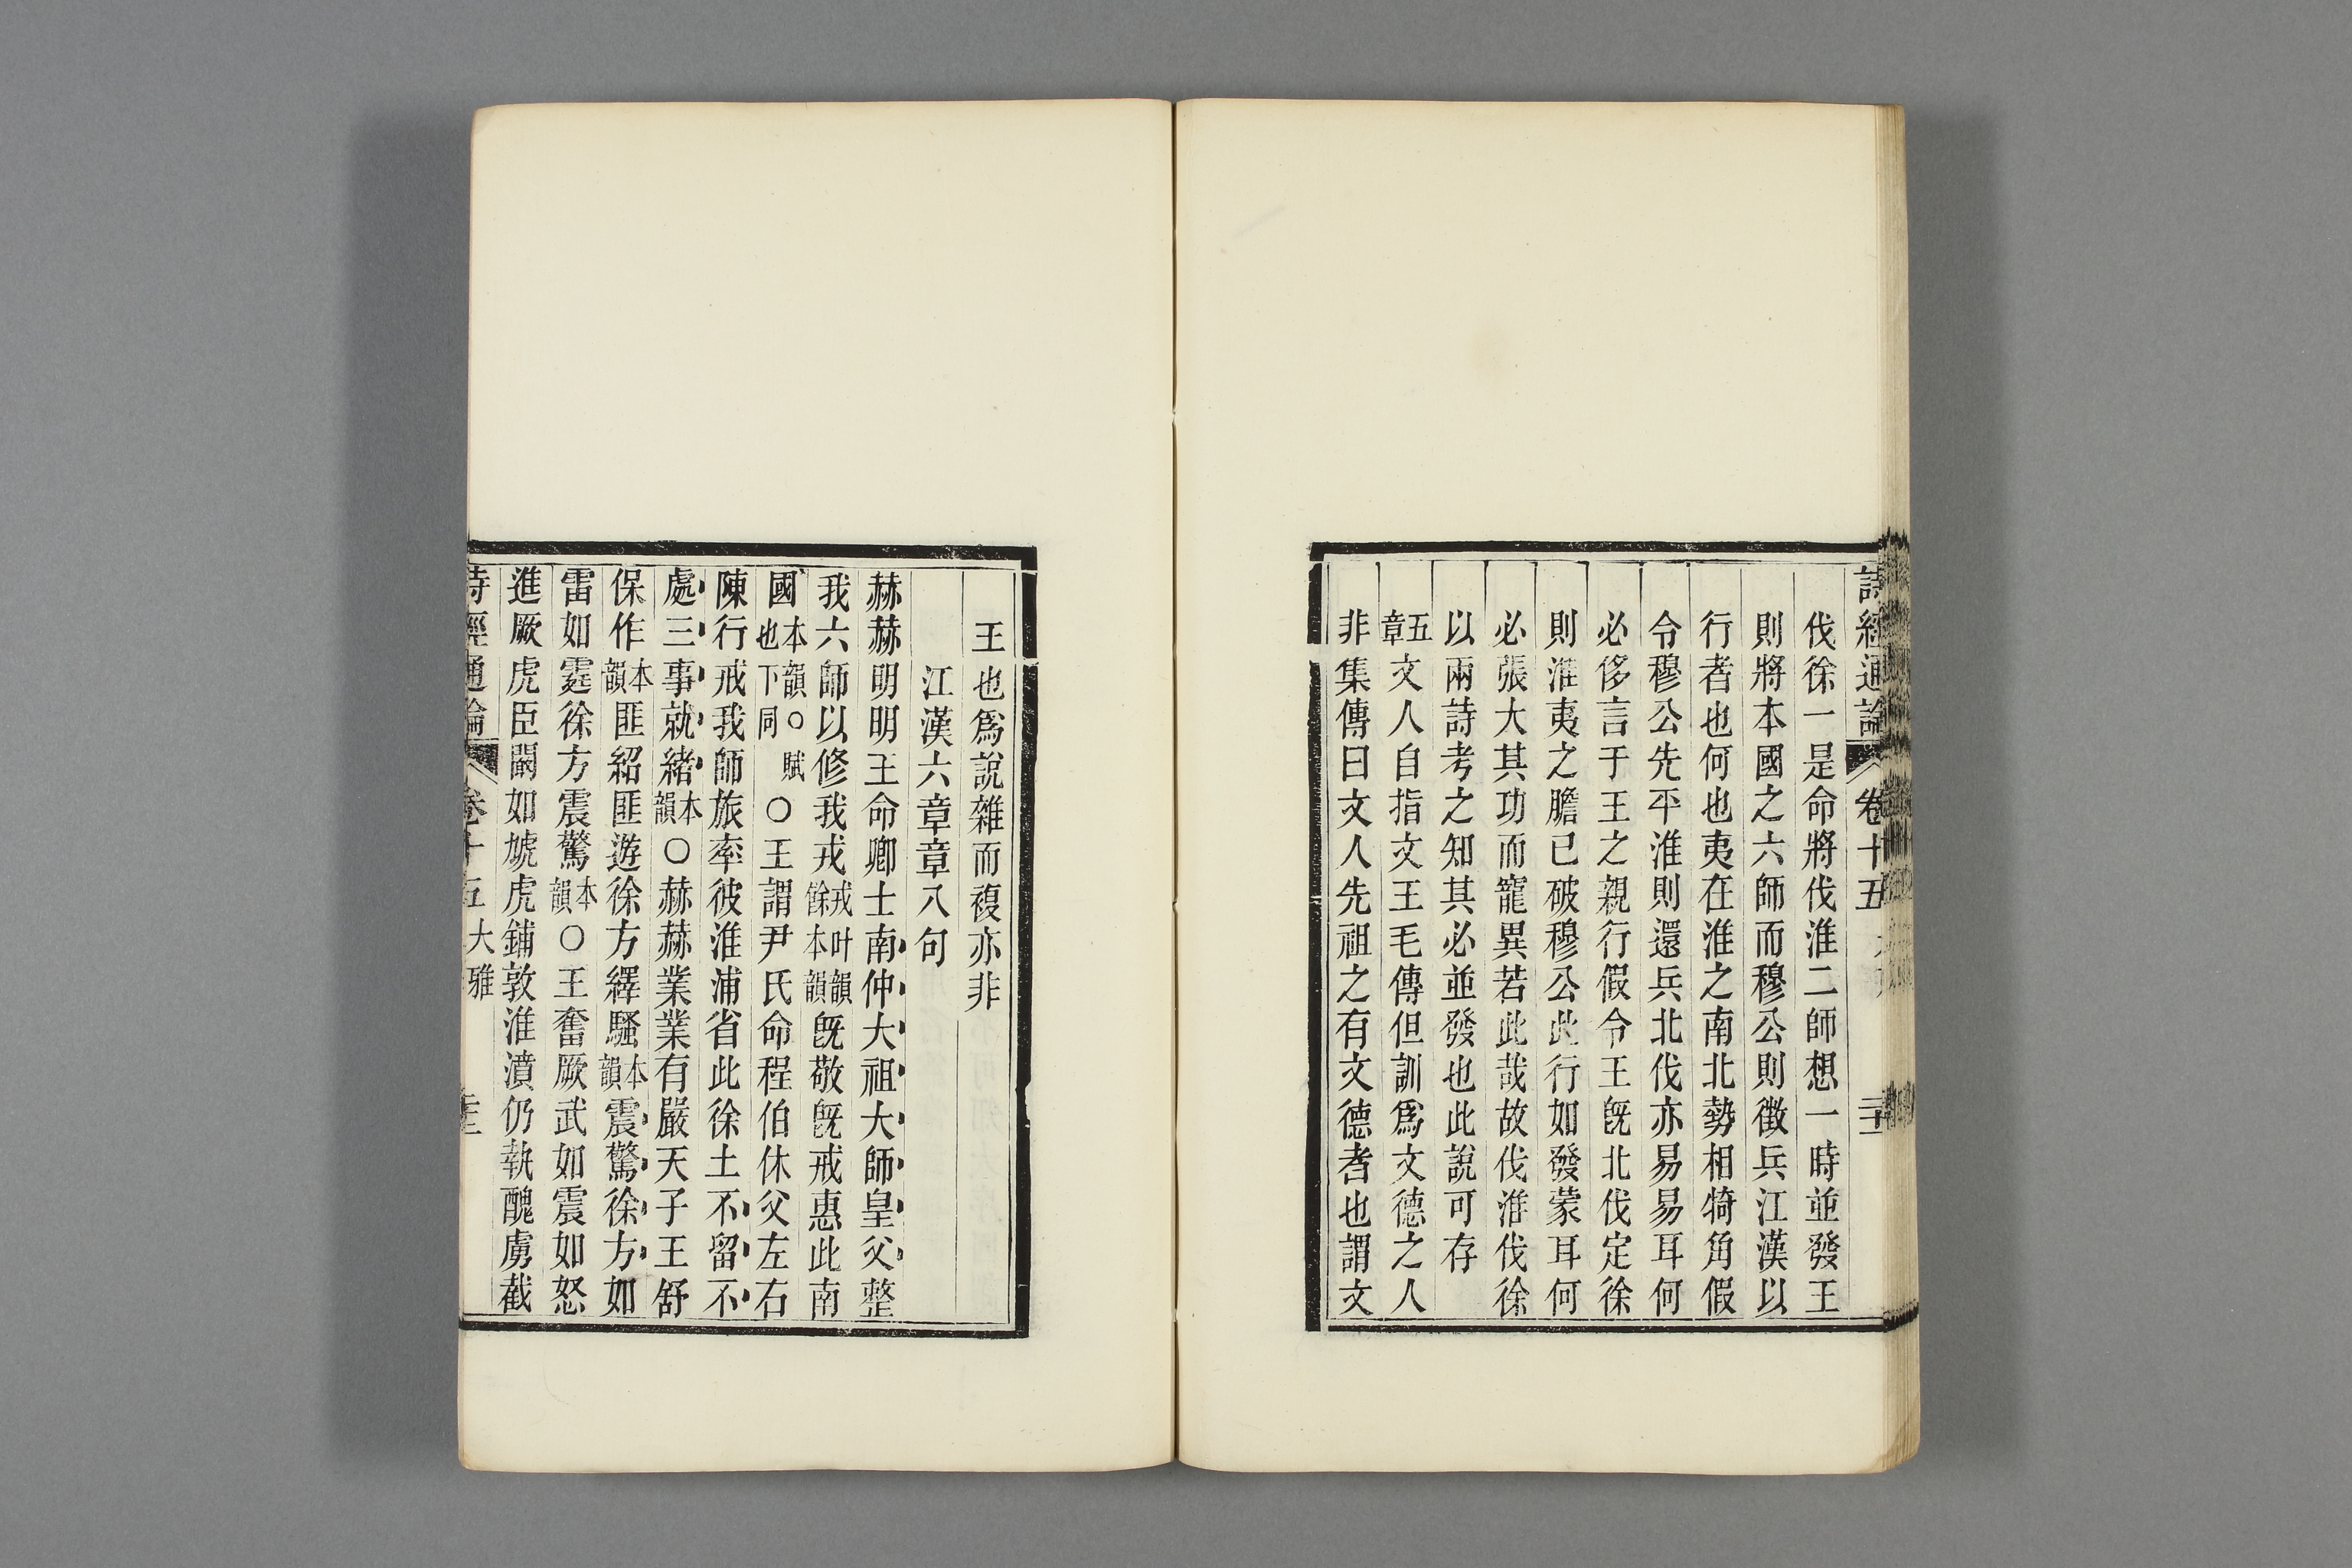 詩經通論 卷十五
伐徐一是命將伐淮二師想一時並發王
則將本國之六師而穆公則徵兵江漢以
行者也何也夷在淮之南北勢相犄角假
令穆公先平淮則還兵北伐亦易易耳何
必侈言于王之親行假令王旣北伐定徐
則淮夷之膽已破穆公此行如發蒙耳何
必張大其功而寵異若此哉故伐淮伐徐
以兩詩考之知其必並發也此說可存
五章文人自指文王毛傳但訓爲文德之人
非集傳曰文人先祖之有文德者也謂文
王也爲說雜而複亦非
江漢六章章八句
赫赫明明王命卿士南仲大祖大師皇父整
我六師以修我戎戎叶韻餘本韻旣敬旣戒惠此南
國本韻○賦也下同○王謂尹氏命程伯休父左右
陳行戒我師旅率彼淮浦省此徐土不留不
處三事就緒本韻○赫赫業業有嚴天子王舒
保作本韻匪紹匪遊徐方繹騷本韻震驚徐方如
雷如霆徐方震驚本韻○王奮厥武如震如怒
進厥虎臣闞如虓虎鋪敦淮濆仍執醜虜截
詩經通論 卷十五大雅